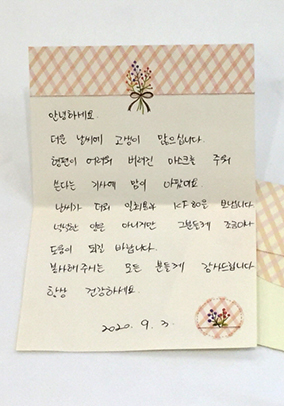 안녕하세요.
더운 날씨에 고생이 많으십니다.
형편이 어려워 버려진 마스크를 주워
쓴다는 기사에 맘이 아팠어요.
날씨가 더워 일회용과 KF80을 보냅니다
넉넉한 양은 아니지만 그분들께 조금이나
도움이 되길 바랍니다.
봉사해주시는 모든 분들께 감사드립니다
항상 건강하세요.
2020. 9. 3.